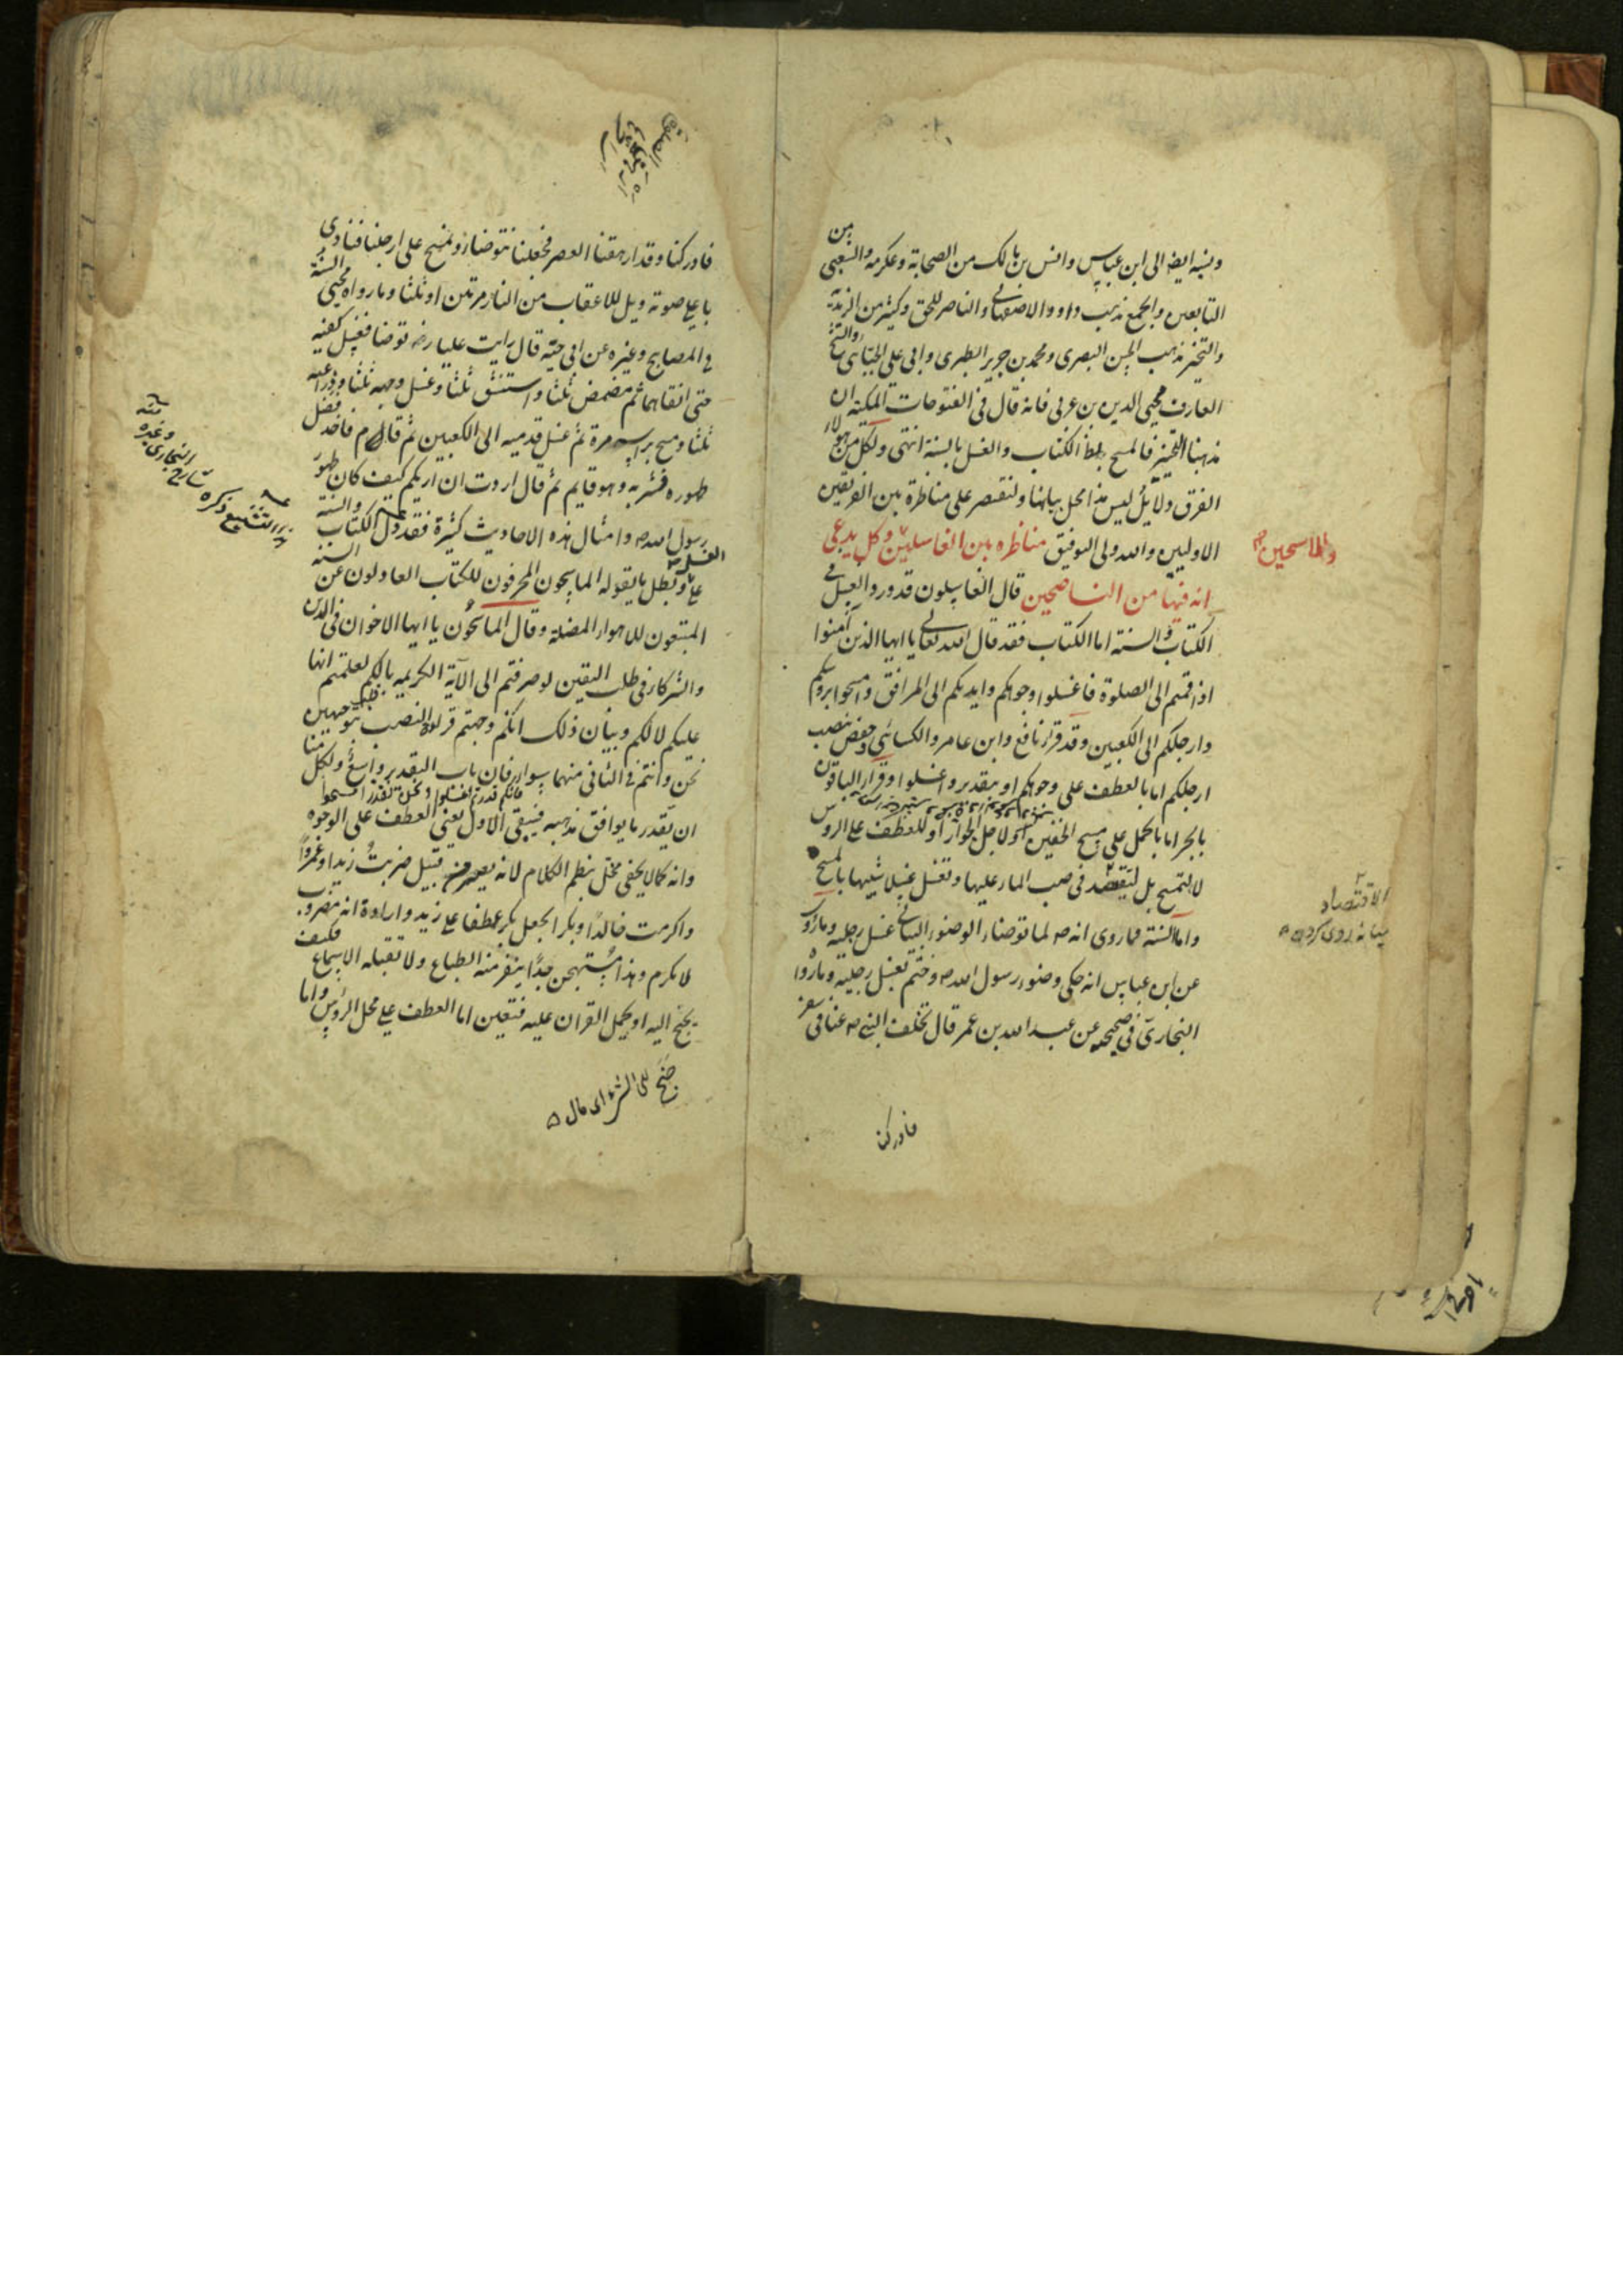 ونسبه ايضا الى ابن عباس وانس بن مالك من الصحابة وعكرمه والشعبى من
التابعين والجمع مذهب داود الاصفهانى والناصر للحق وكثير من الزيديه
والتخيير مذهب الحسن البصرى ومحمد بن جرير الطبرى وابى على الجبائى والشيخ
العارف محيى الدين بن عربى فانه قال فى الفتوحات المكية ان
مذهبنا التخيير فالمسح بظاهر الكتاب والغسل بالسنة انتهى ولكل من هؤلاء
الفرق دلايل ليس هذا محل بيانها ولنقتصر على مناظرة بين الفريقين
الاوليين والله ولى التوفيق مناظره بين الغاسلين وكل يدعى
والماسحين
انه فيها من الناصحين قال الغاسلون قد ورد الغسل فى
الكتاب والسنة اما الكتاب فقد قال الله تعالى يا ايها الذين آمنوا
اذا قمتم الى الصلوة فاغسلوا وجوهكم وايديكم الى المرافق وامسحوا برؤسكم
وارجلكم الى الكعبين وقد قرأ نافع وابن عامر والكسائى وحفص بنصب
ارجلكم اما بالعطف على وجوهكم او بتقدير واغسلوا وقرأ الباقون
بالجر اما بالحمل على مسح الخفين او لاجل الجوار او للعطف على الروس
لا لتمسح بل لتقتصد فى صب الماء عليها وتغسل غسلا شبيها بالمسح
الاقتصاد
ميانه روى كردن
واما السنة فما روى انه ص لما توضاء الوضوء البيانى غسل رجليه وما روى
عن ابن عباس انه حكى وضوء رسول الله ص وختم بغسل رجليه وما روا
البخارى فى صحيحه عن عبد الله بن عمر قال تخلف النبى ص عنا فى سفر
فادركنا
فادركنا وقد ارهقنا العصر فجعلنا نتوضاء ونمسح على ارجلنا فنادى
باعلى صوته ويل للاعقاب من النار مرتين او ثلثا وما رواه محيى السنة
فى المصابيح وغيره عن ابى حيته قال رايت عليا رض توضا فغسل كفيه
حتى انقاهما ثم مضمض ثلثا واستنشق ثلثا وغسل وجهه ثلثا وذراعيه
ثلثا ومسح براسه مرة ثم غسل قدميه الى الكعبين ثم قام فاخذ فضل
طهوره فشربه وهو قايم ثم قال اردت ان اريكم كيف كان طهور
رسول الله ص وامثال هذه الاحاديث كثيرة فقد دل الكتاب والسنة
على الغسل وبطل ما يقوله الماسحون المحرفون للكتاب العادلون عن السنة
المتبعون للاهواء المضلة وقال الماسحون يا ايها الاخوان فى الدين
والشركاء فى طلب اليقين لو صرفتم الى الآية الكريمه بالكم لعلمتم انها
عليكم لا لكم وبيان ذلك انكم وجهتم قراءة النصب بتوجيهين
نحن وانتم فى الثانى منهما سواء فان باب التقدير واسع ولكل منا
فانكم قدرتم اغسلوا ونحن نقدر امسحوا
ان يقدر ما يوافق مذهبه فيبقى الاول يعنى العطف على الوجوه
وانه كما لا يخفى مخل بنظم الكلام لانه يصير من قبيل ضربت زيدا وعمروا
واكرمت خالدا وبكرا بجعل بكر عطفا على زيد وارادة انه مضروب
لا مكرم وهذا مستهجن جدا ينفر منه الطباع ولا تقبله الاسماع فكيف
يجنح اليه او يحمل القران عليه فتعين اما العطف على محل الرؤس واما
جنح الى الشئ اى مال